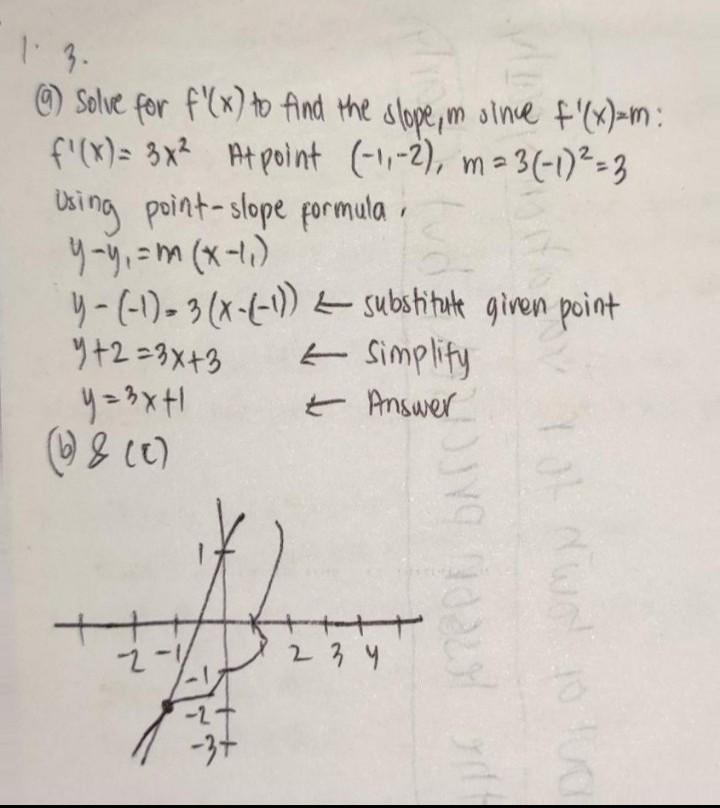 1. 3.
(a) Solve for f'(x) to find the slope, m since f'(x)=m:
f'(x)= 3x² At point (-1,-2), m = 3(-1)²=3
Using point-slope formula.
y-y₁=m(x-1₁)
y-(-1)=3(x-(-1)) ← substitute given point
y+2=3x+3 ← Simplify
y=3x+1 ← Answer
(b) & (c)
1
-2 -1 2 3 4
-1
-2
-3